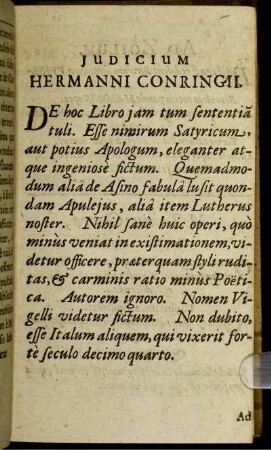 JUDICIUM
HERMANNI CONRINGII.
DE hoc Libro jam tum sententiã
tuli. Esse nimirum Satyricum,
aut potius Apologum, eleganter at-
que ingeniose fictum. Quemadmo-
dum aliâ de Asino fabulâ lusit quon-
dam Apulejus, aliâ item Lutherus
noster. Nihil sanè huic operi, quò
minùs veniat in existimationem, vi-
detur officere, præterquam styli rudi-
tas, & carminis ratio minùs Poëti-
ca. Autorem ignoro. Nomen Vi-
gelli videtur fictum. Non dubito,
esse Italum aliquem, qui vixerit for-
tè seculo decimo quarto.
Ad